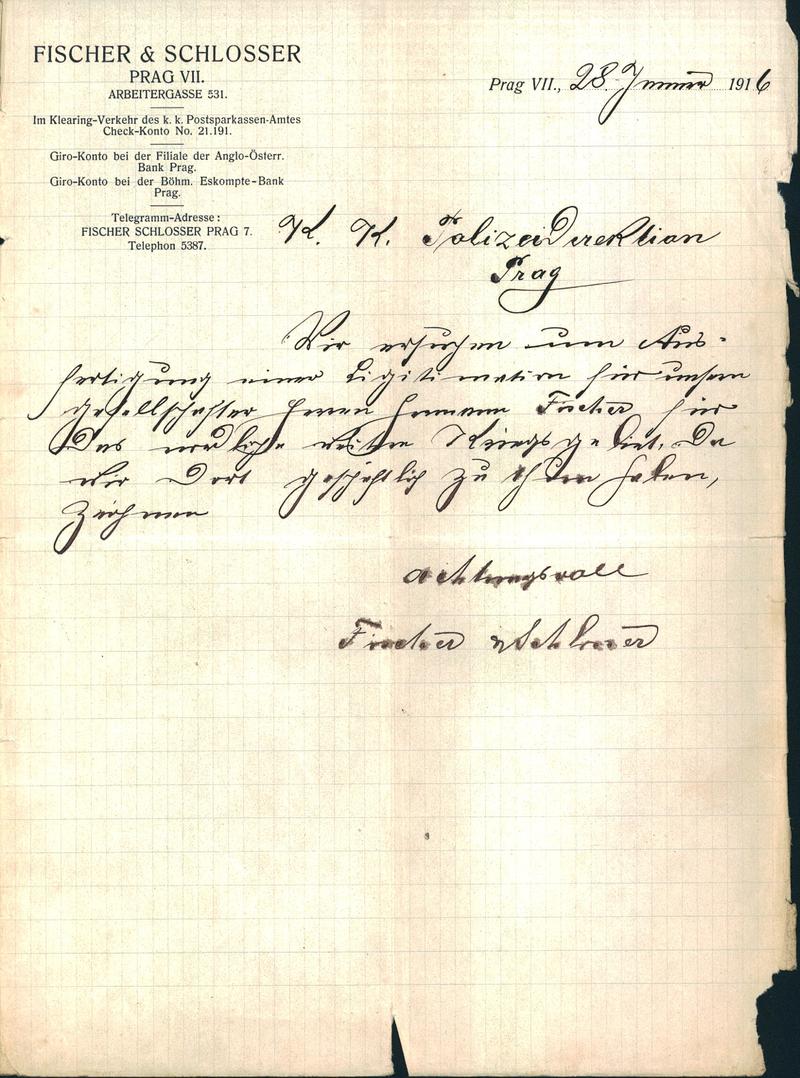 FISCHER & SCHLOSSER
PRAG VII.
ARBEITERGASSE 531.
Im Klearing-Verkehr des k. k. Postsparkassen-Amtes
Check-Konto No. 21.191.
Giro-Konto bei der Filiale der Anglo-Österr.
Bank Prag.
Giro-Konto bei der Böhm. Eskompte-Bank
Prag.
Telegramm-Adresse:
FISCHER SCHLOSSER PRAG 7.
Telephon 5387.
Prag VII., 28. Jänner 1916
K. K. PolizeiDirektion
Prag
Wir ersuchen um Aus-
fertigung einer Ligitimation für unsern
Gesellschafter Herrn Hermann Fischer für
Das nördliche weitere Kriegsgebiet. Da
wir Dort geschäftlich zu thun haben,
Zeichnen
Achtungsvoll
Fischer & Schlosser